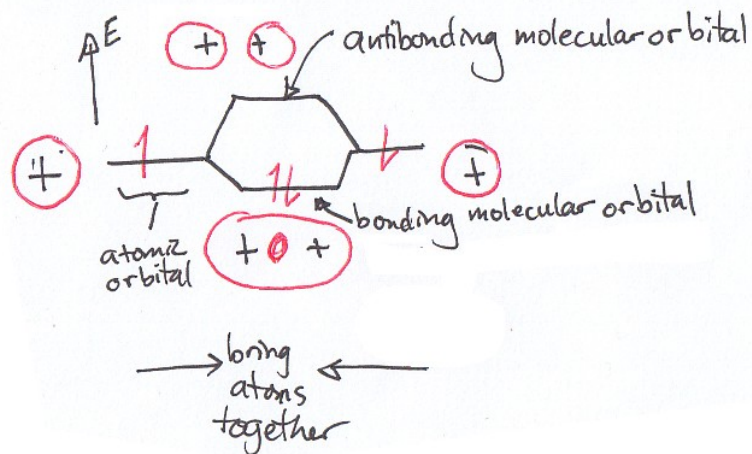 E
+ +
antibonding molecular orbital
+
+
bonding molecular orbital
atomic
orbital
+ +
bring
atoms
together